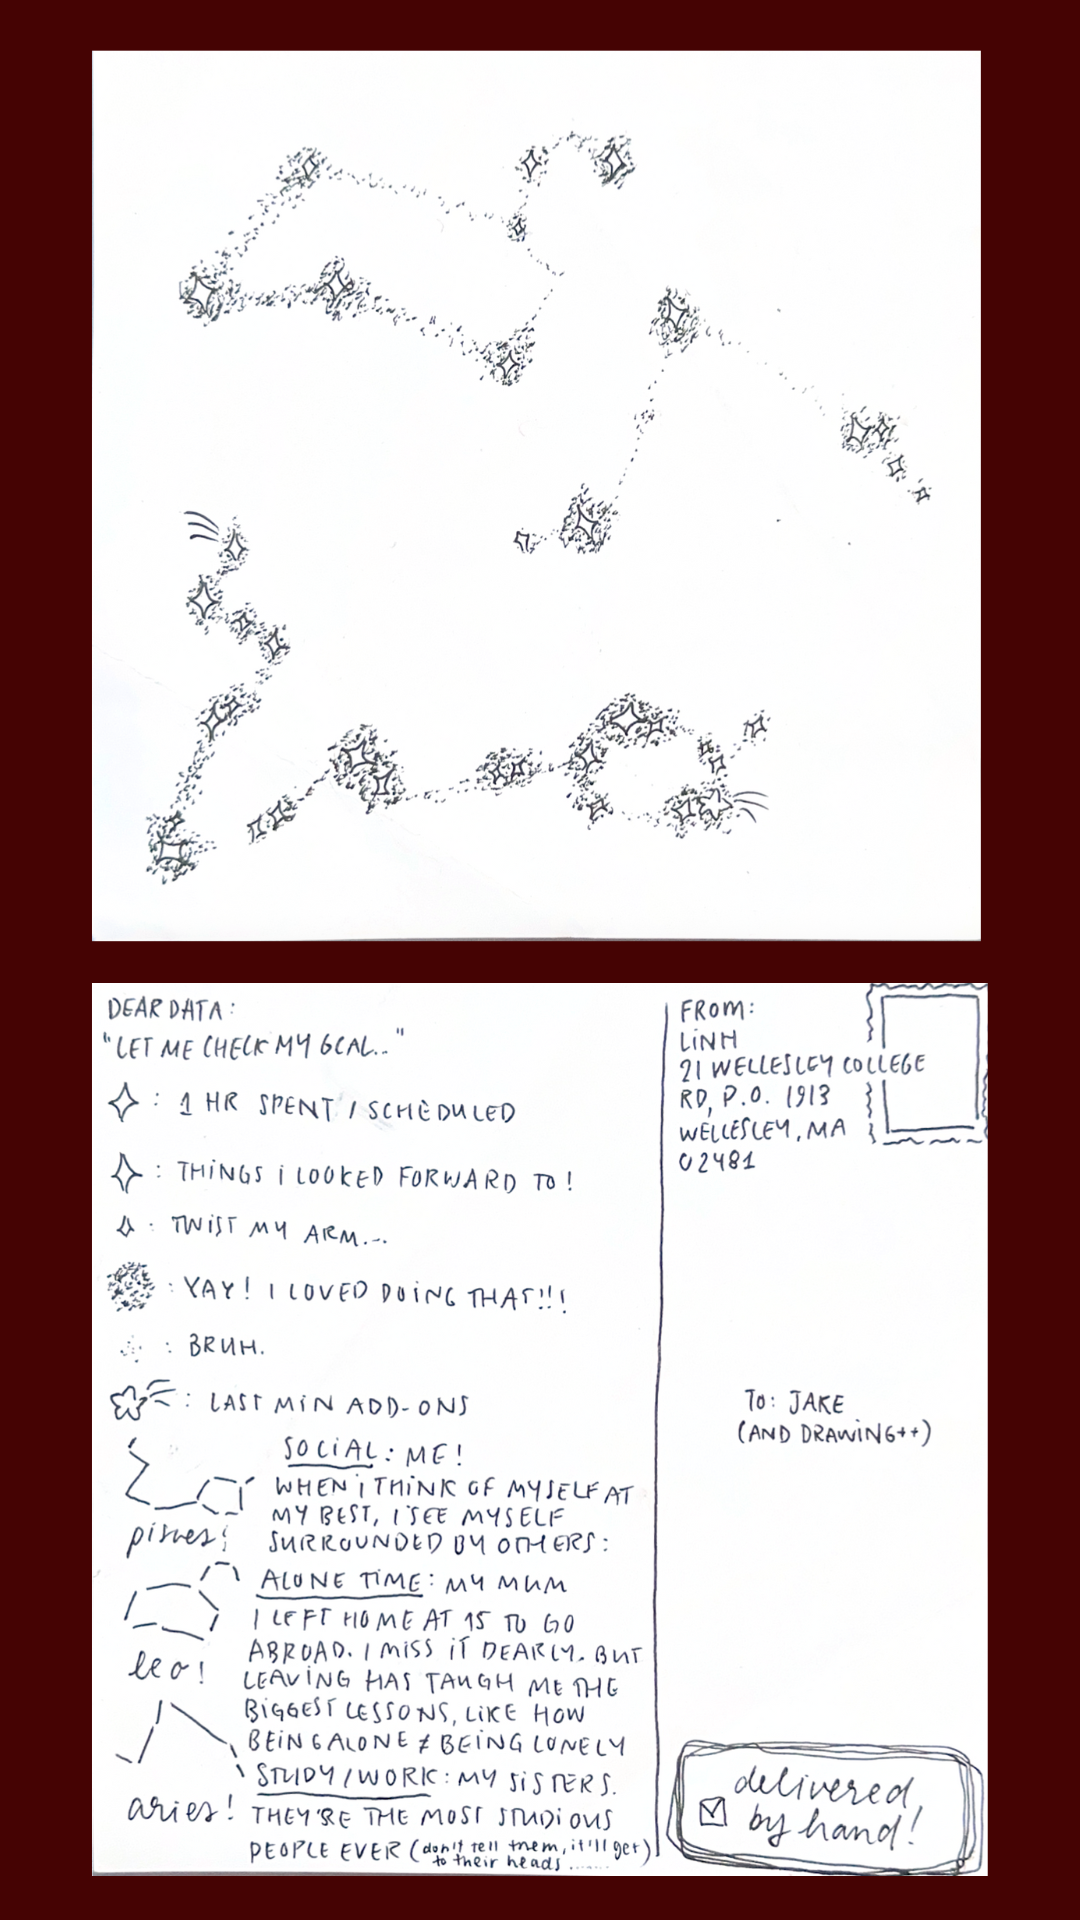 DEAR DATA:
"LET ME CHECK MY GCAL.."
: 1 HR SPENT / SCHEDULED
: THINGS I LOOKED FORWARD TO!
: TWIST MY ARM...
: YAY! I LOVED DOING THAT!!!
: BRUH.
: LAST MIN ADD-ONS
SOCIAL: ME!
WHEN I THINK OF MYSELF AT
MY BEST, I SEE MYSELF
SURROUNDED BY OTHERS:
pisces!
ALONE TIME: MY MUM
I LEFT HOME AT 15 TO GO
ABROAD. I MISS IT DEARLY. BUT
LEAVING HAS TAUGH ME THE
BIGGEST LESSONS, LIKE HOW
BEING ALONE ≠ BEING LONELY
leo!
STUDY/WORK: MY SISTERS.
THEY'RE THE MOST STUDIOUS
PEOPLE EVER (don't tell them, it'll get)
to their heads......
aries!
FROM:
LINH
21 WELLESLEY COLLEGE
RD, P.O. 1913
WELLESLEY, MA
02481
TO: JAKE
(AND DRAWING++)
delivered
by hand!